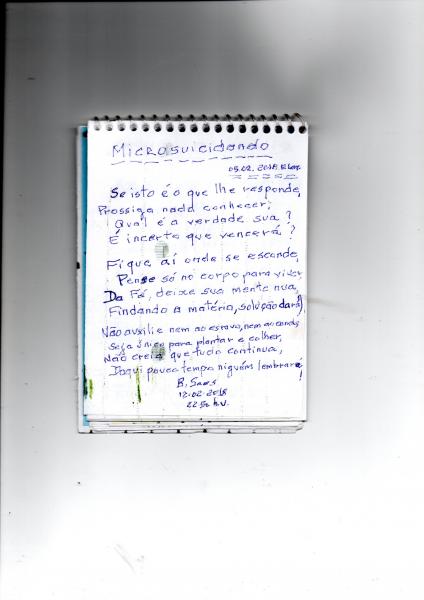 Microsuicidando
05.02.2018
Se isto é o que lhe responde,
Prossiga nada conhecer;
Qual é a verdade sua?
É incerto que vencerá?
Fique aí onde se esconde,
Pense só no corpo para viver,
Da Fá, deixe sua mente nua,
Findando a matéria, solução dará!
Não auxilie nem ao estavo, nem ao
Seja único para plantar e colher,
Não creia que tudo continua,
Daqui pouco tempo niguém lembrará!
B. Sans
12.02.2018
22:50 h.v.